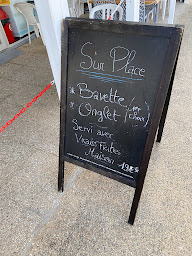 Sur Place
* Bavette
* Onglet
Servi avec
Vraies Frites
Maison